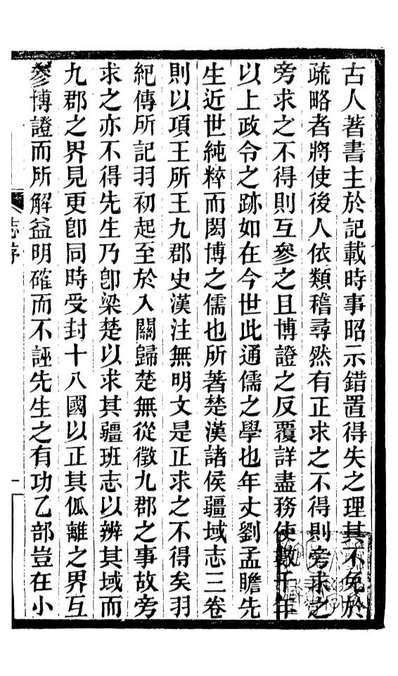 古人著書主於記載時事昭示錯置得失之理其不免於
疏略者將使後人依類稽尋然有正求之不得則旁求之
旁求之不得則互參之且博證之反覆詳盡務使數千年
以上政令之跡如在今世此通儒之學也年丈劉孟瞻先
生近世純粹而閎博之儒也所著楚漢諸侯疆域志三卷
則以項王所王九郡史漢注無明文是正求之不得矣羽
紀傳所記羽初起至於入關歸楚無從徵九郡之事故旁
求之亦不得先生乃卽梁楚以求其疆班志以辨其域而
九郡之界見更卽同時受封十八國以正其佤離之界互
參博證而所解益明確而不誣先生之有功乙部豈在小
志序
一